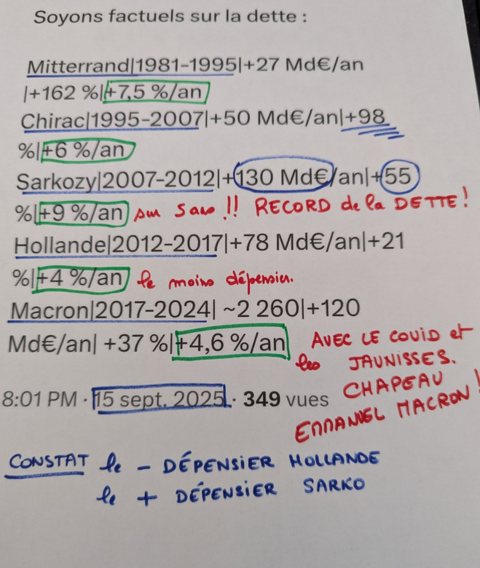 Soyons factuels sur la dette :
Mitterrand|1981-1995|+27 Md€/an
|+162 %|+7,5 %/an
Chirac|1995-2007|+50 Md€/an|+98
%|+6 %/an
Sarkozy|2007-2012|+130 Md€/an|+55
%|+9 %/an sur 5 ans !! RECORD de la DETTE !
Hollande|2012-2017|+78 Md€/an|+21
%|+4 %/an le moins dépensier.
Macron|2017-2024| ~2 260|+120
Md€/an| +37 %|+4,6 %/an AVEC LE COVID et
les JAUNISSES.
8:01 PM · 15 sept. 2025 · 349 vues CHAPEAU
EMMANUEL MACRON !
CONSTAT le - DÉPENSIER HOLLANDE
le + DÉPENSIER SARKO